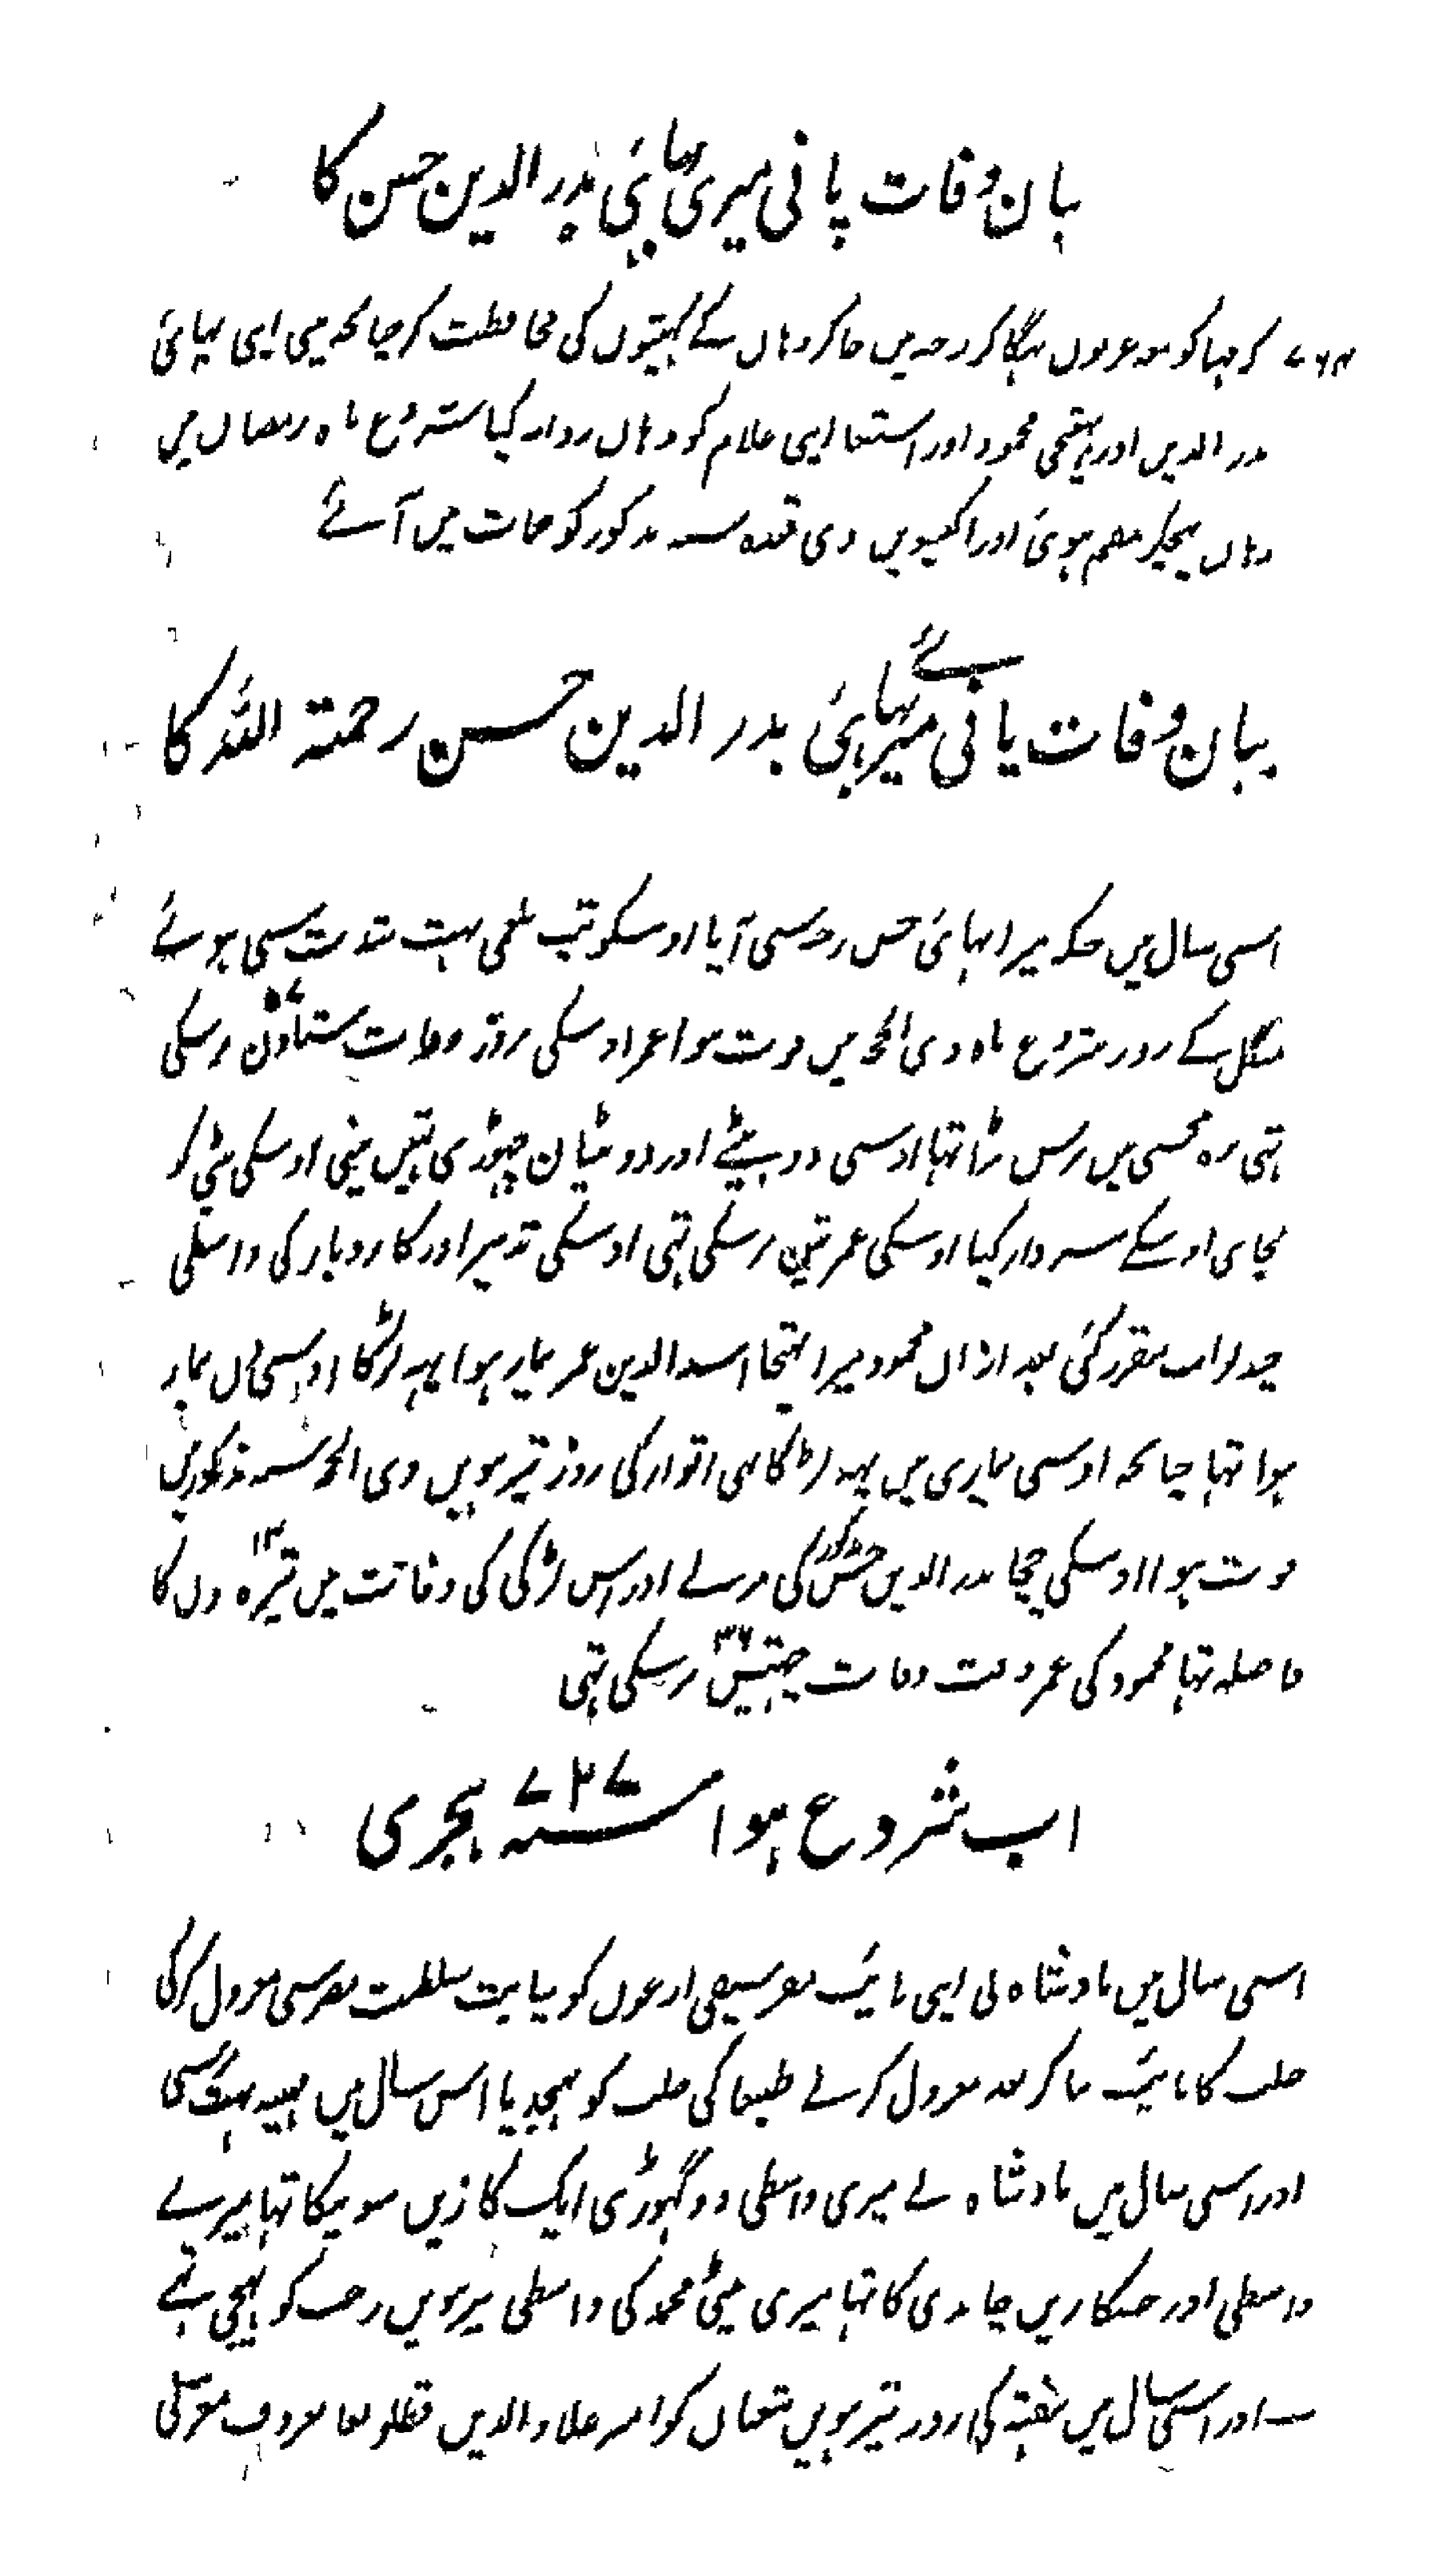 بیان وفات پانی میری بہائی بدر الدین حسن کا
۷۶۴ کرہیا کو سو عربوں بہگا کر رحبہ میں جاکر وہاں کے کہیتوں کی محافظت کر چنانچہ میں اپنی بہائی
بدر الدین اور بہتیجی محمود اور استنبغا اپنی غلام کو وہاں روانہ کیا شروع ماہ رمضان میں
وہاں پہنچکر مقیم ہوئی اور اکیسویں ذی قعدہ سنہ مذکور کو حمات میں آئے
بیان وفات پانی میرے بہائی بدر الدین حسن رحمتہ اللہ کا
اسی سال میں جبکہ میرا بہائی حسن رحبہ سی آیا اوسکو تپ بلغمی بہت شدت سی ہوئے
منگل کے روز شروع ماہ ذی الحجہ میں فوت ہوا عمر اوسکی بروز وفات ستاون ۵۷ برسکی
تہی وہ مجسی میں برس بڑا تہا اوسی دو بیٹے اور دو بیٹیان چہوڑی تہیں مینی اوسکی بیٹی کو
بجای اوسکے سردار کیا اوسکی عمر تین برسکی تہی اوسکی تدبیر اور کاروبار کی واسطی
چند نواب مقرر کئی بعد ازاں محمود میرا بہتیجا اسد الدین عمر بیمار ہوا یہہ لڑکا اوسی میں بیمار
ہوا تہا چنانچہ اوسی بیماری میں یہہ لڑکا بہی اتوار کی روز تیرہویں ذی الحجہ سنہ مذکور میں
فوت ہوا اوسکی چچا بدر الدین حسن مذکور کی مرنے اور اس لڑکی کی وفات میں تیرہ ۱۳ دن کا
فاصلہ تہا محمود کی عمر وقت وفات چہتیس ۳۶ برسکی تہی
اب شروع ہوا سنہ ۷۲۷ ہجری
اسی سال میں بادشاہ نی اپنی نائب مصر سیفی ارغون کو نیابت سلطنت مصر سی معزول کرکی
حلب کا نائب بناکر بعد معزول کرنے طنبغا کی حلب کو بہیجدیا اس سال میں بہت سی
اور اسی سال میں بادشاہ نے میری واسطی دو گہوڑی ایک کا زین سونیکا تہا میرے
واسطی اور جسکا زین چاندی کا تہا میری بیٹی محمد کی واسطی تیرہویں رجب کو بہیجی تہے
اور اسی سال میں ہفتہ کی روز تیرہویں شعبان کو امیر علاء الدین قطلوبغا معروف مغربی